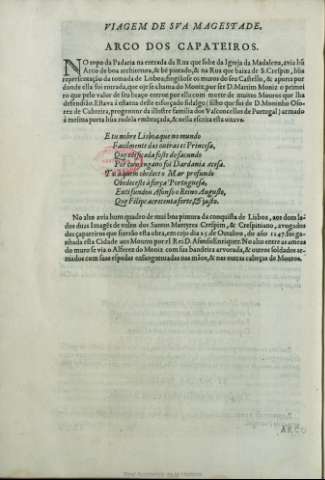 VIAGEM DE SVA MAGESTADE.
ARCO DOS CAPATEIROS.
NO topo da Padaria na entrada da Rua que sobe da Igreja da Madalena, avia hũ
Arco de boa architetura, & bẽ pintado, & na Rua que baixa de S. Crespim, hũa
representação da tomada de Lisboa, fingiãose os muros do seu Castello, & a porta por
donde ella foi entrada, que oje se chama do Moniz, por ser D. Martim Moniz o primei
ro que pelo valor de seu braço entrou por ella com morte de muitos Mouros que lha
defendião. Estava à estatua deste esforçado fidalgo (filho que foi de D. Moninho Oso-
rez de Cabreira, progenitor da illustre familia dos Vasconcellos de Portugal) armado
á mesma porta hũa rodela embraçada, & nella escrita esta oitava.
E tu nobre Lisboa que no mundo
Facilmente das outras es Princesa,
Que edificada foste do facundo
Por cujo engano foi Dardania acesa.
Tu a quem obedece o Mar profundo
Obedeceste á força Portuguesa,
Entrãdo Afonso o Reino Augusto,
Que Filipe acrecenta forte, & justo.
No alto avia hum quadro de mui boa pintura da conquista de Lisboa, aos dous la-
dos duas Imagẽs de vulto dos Santos Martyres Crespim, & Crespiniano, avogados
dos çapateiros que fizerão esta obra, em cujo dia 25 de Outubro, do año 1147. foi ga-
nhada esta Cidade aos Mouros por el Rei D. Afonso Enriquez. No alto entre as ameas
do muro se via o Alferez do Moniz com sua bandeira arvorada, & outros soldados ar-
mados com suas espadas ensanguentadas nas mãos, & nas outras cabeças de Mouros.
ARCO
Real Academia de la Historia